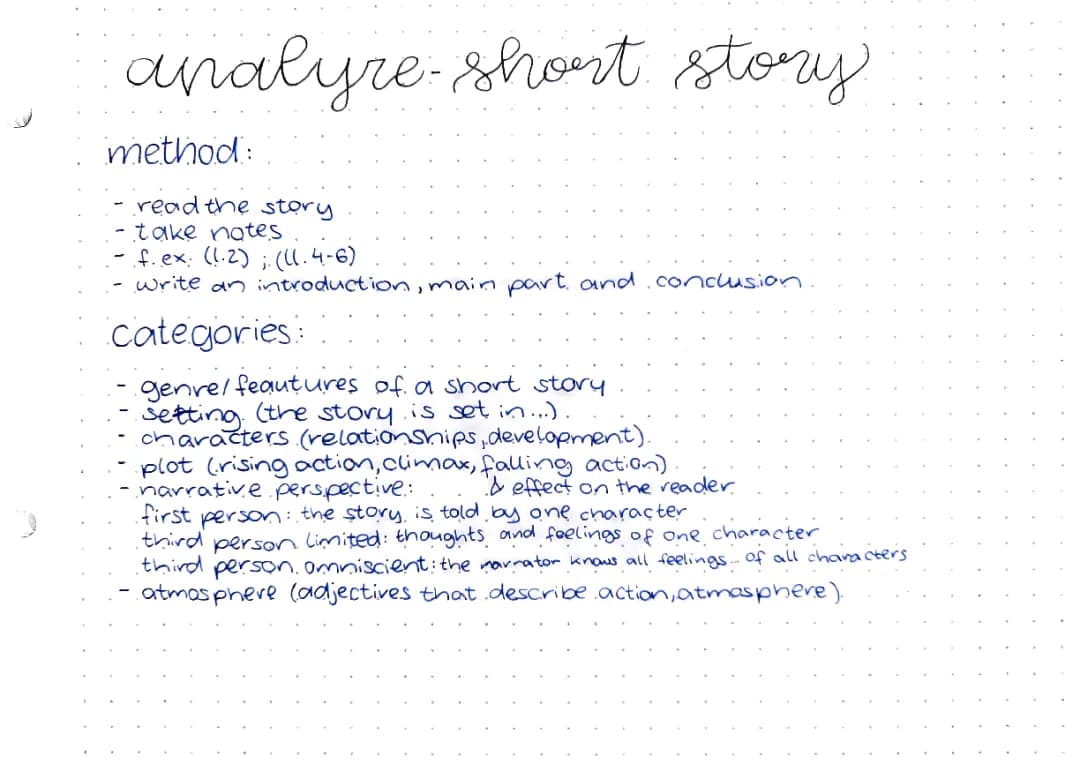 analyze - short story
method:
- read the story
- take notes
- f. ex. (l.2) ; (ll. 4-6)
- write an introduction, main part and conclusion
categories:
- genre/ feautures of a short story
- setting (the story is set in...)
- characters (relationships, development)
- plot (rising action, climax, falling action)
- narrative perspective: & effect on the reader
first person: the story is told by one character
third person limited: thoughts and feelings of one character
third person omniscient: the narrator knows all feelings... of all characters
- atmosphere (adjectives that describe action, atmosphere)